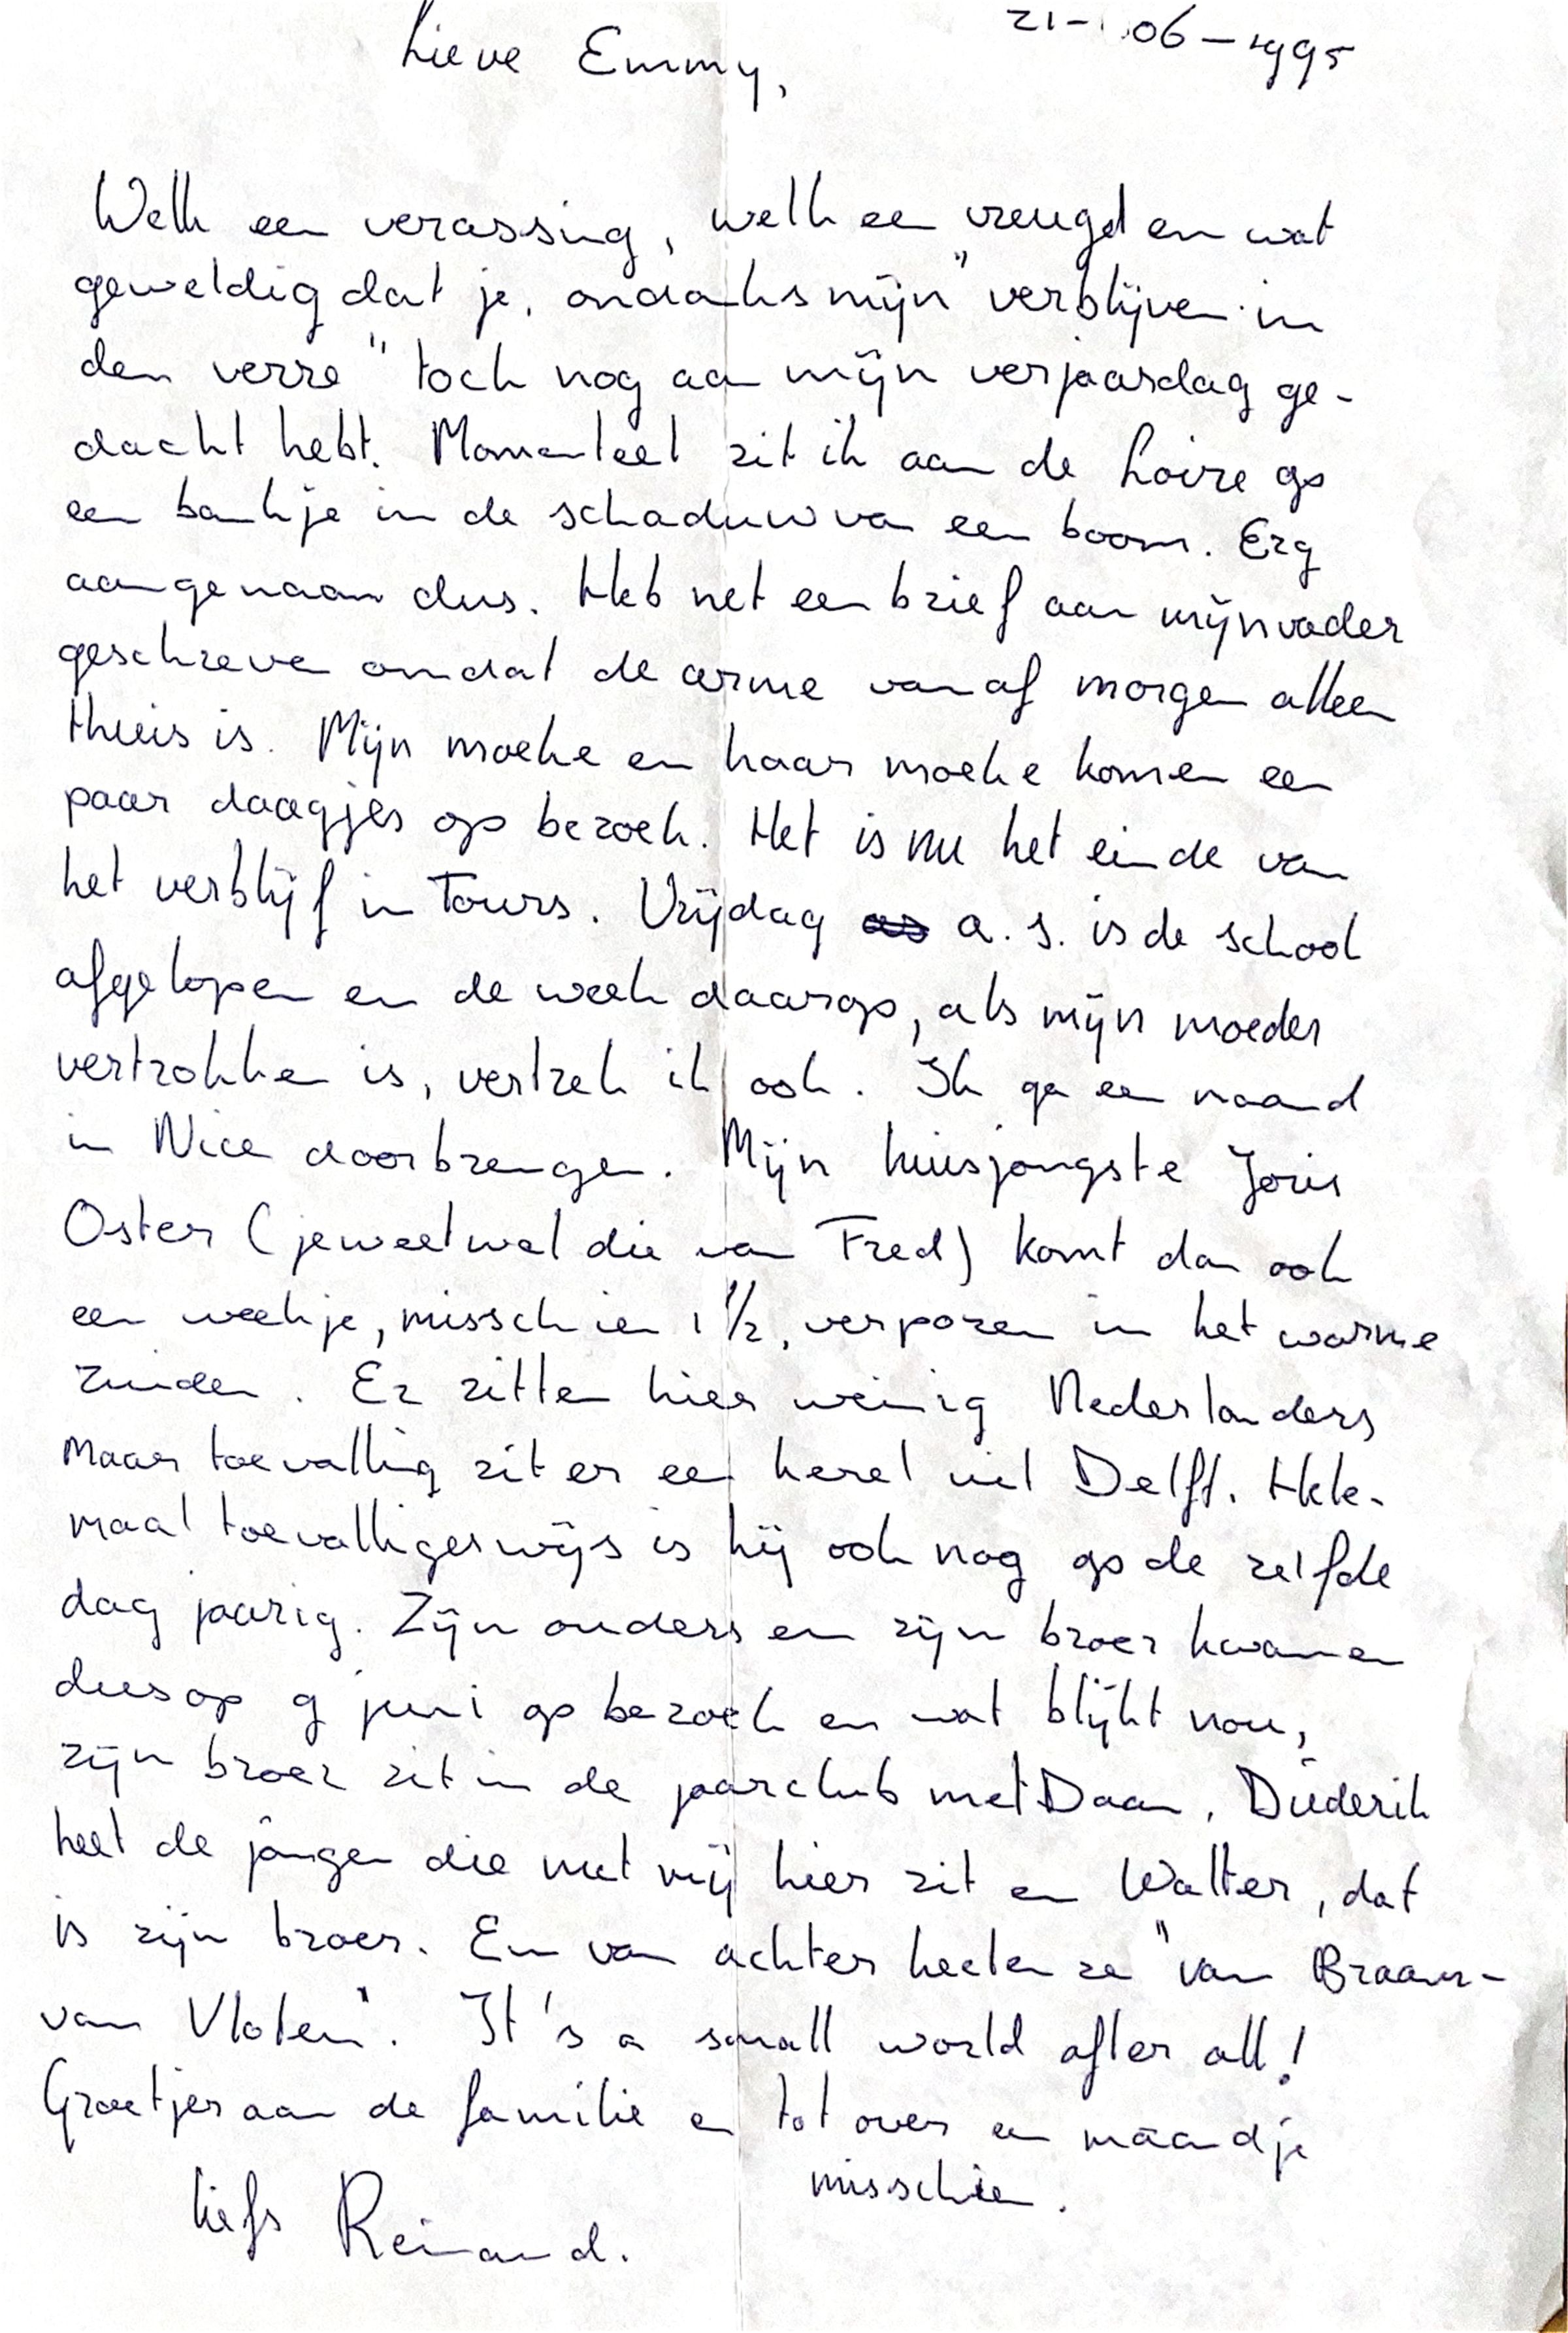 21-06-1995
Lieve Emmy,
Welk een verassing, welk een vreugd en wat
geweldig dat je, ondanks mijn "verblijven in
den verre" toch nog aan mijn verjaardag ge-
dacht hebt. Momenteel zit ik aan de Loire op
een bankje in de schaduw van een boom. Erg
aangenaam dus. Heb net een brief aan mijn vader
geschreven omdat de arme vanaf morgen alleen
thuis is. Mijn moeke en haar moeke komen een
paar daagjes op bezoek. Het is nu het einde van
het verblijf in Tours. Vrijdag a.s. is de school
afgelopen en de week daarop, als mijn moeder
vertrokken is, vertrek ik ook. Ik ga een maand
in Nice doorbrengen. Mijn huisjongste Joris
Oster (je weet wel die van Fred) komt dan ook
een weekje, misschien 1 1/2, verpozen in het warme
zuiden. Er zitten hier weinig Nederlanders
maar toevallig zit er een kerel uit Delft. Hele-
maal toevalligerwijs is hij ook nog op de zelfde
dag jaarig. Zijn ouders en zijn broer kwamen
dus op 9 juni op bezoek en wat blijkt nou,
zijn broer zit in de jaarclub met Daan. Diederik
heet de jongen die met mij hier zit en Walter, dat
is zijn broer. En van achter heeten ze "van Braam-
van Vloten". It's a small world after all!
Groetjes aan de familie en tot over een maandje
misschien.
liefs Reinand.